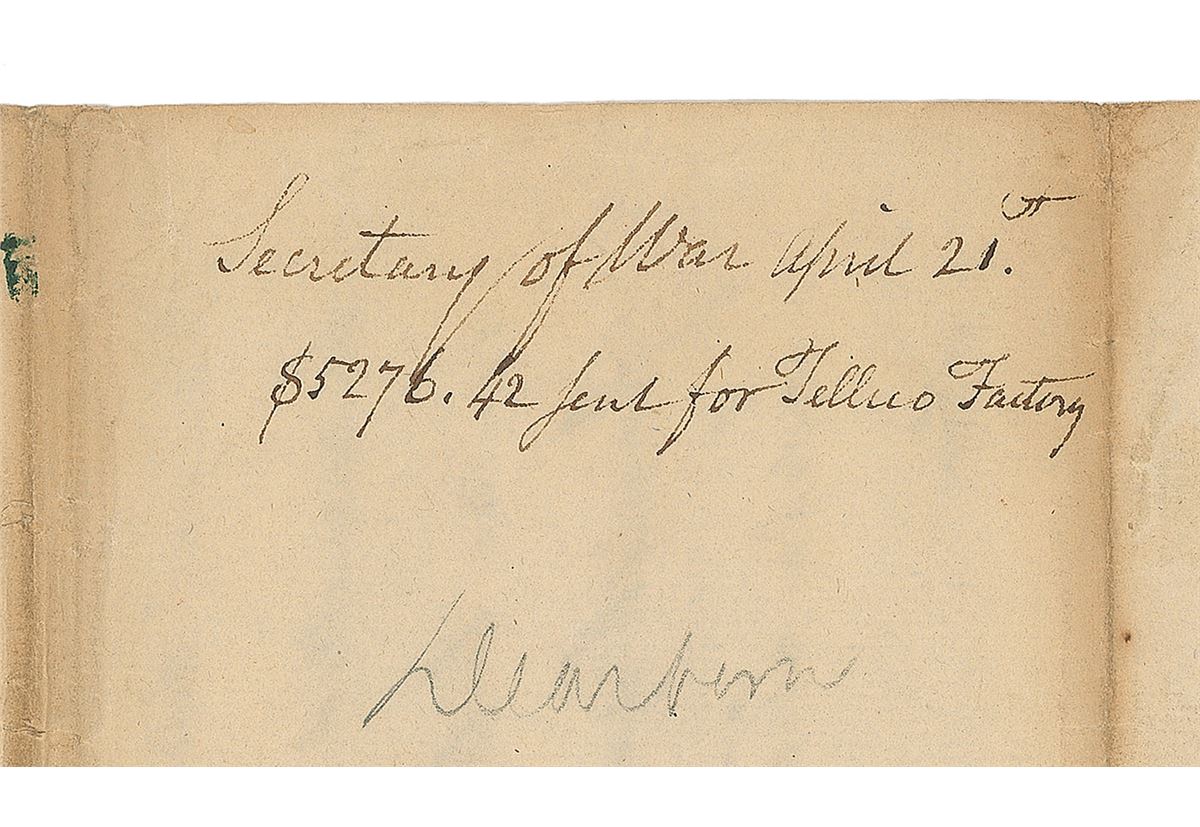 Secretary of War April 21.st
$5276.42 sent for Tellico Factory
Dearborn